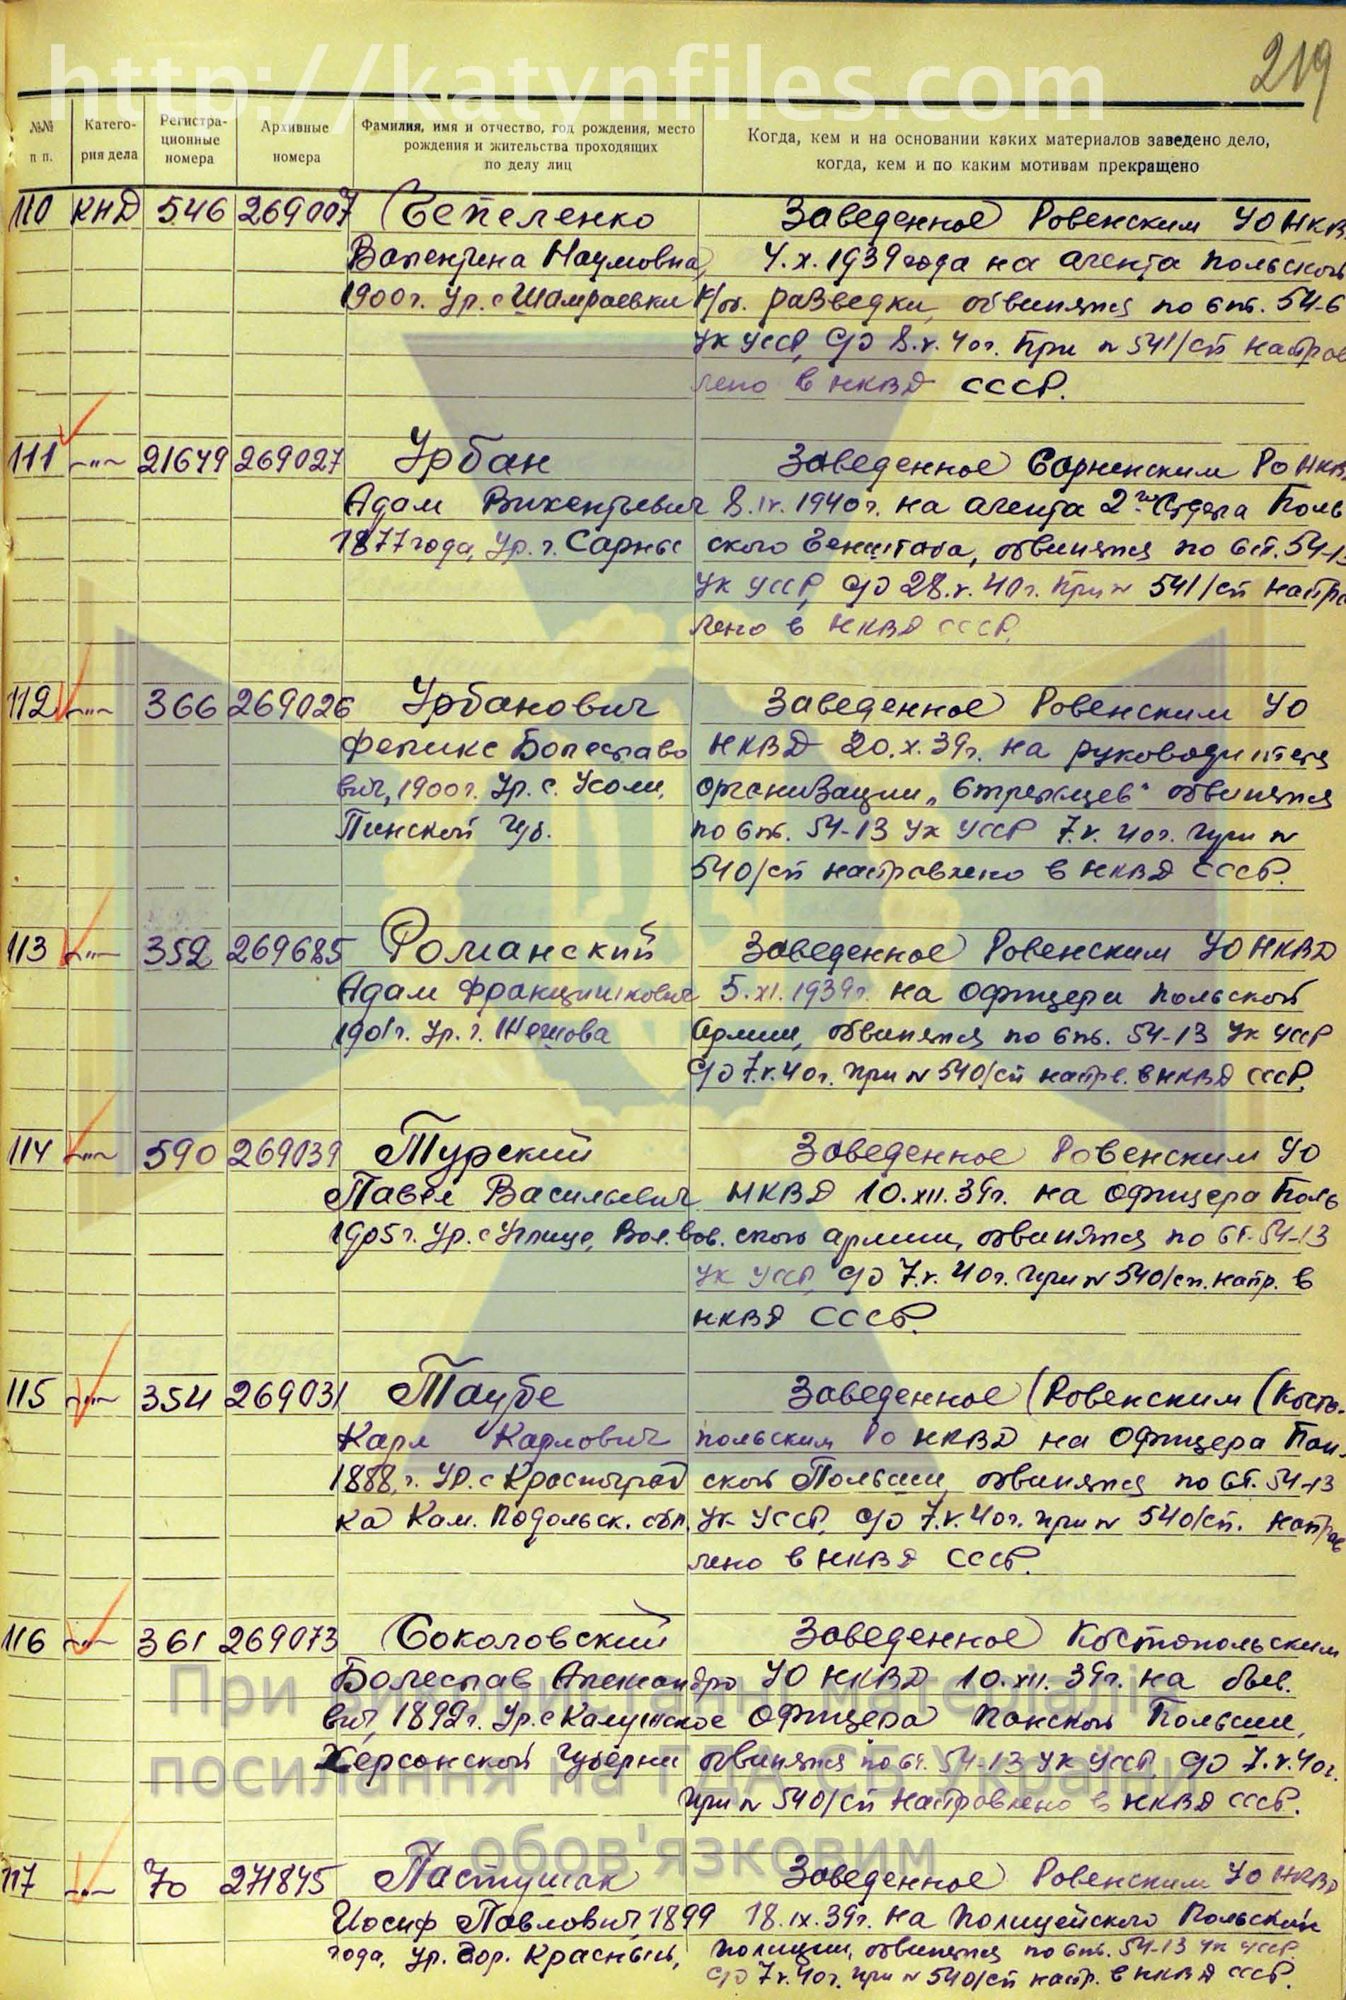 http://katynfiles.com
219
№№ п п.
Катего- рия дела
Регистра- ционные номера
Архивные номера
Фамилия, имя и отчество, год рождения, место рождения и жительства проходящих по делу лиц
Когда, кем и на основании каких материалов заведено дело, когда, кем и по каким мотивам прекращено
110 КНД 546 269007 Сепеленко Заведенное Ровенским УО НКВ
Валентина Наумовна, 4.X.1939 года на агента польской
1900 г. ур. с Шамраевки к/ж. разведки, обвиняется по ст. 54-6
УК УССР, с/д 8.V.40г. при № 541/сп направ
лено в НКВД СССР.
111 —"— 21649 269027 Урбан Заведенное Сарненским РО НКВ
Адам Викентьевич 8.IV.1940г. на агента 2го Отдела Поль
1877 года, ур. г. Сарны ского Генштаба, обвиняется по ст. 54-13
УК УССР, с/д 28.V.40г. при № 541/сп напра
лено в НКВД СССР.
112 —"— 366 269026 Урбанович Заведенное Ровенским УО
Феликс Болеславо НКВД 20.X.39г. на руководителя
вич, 1900г. ур. с. Усоли, организации „Стрельцев" обвиняется
Пинской губ. по ст. 54-13 УК УССР 7.V.40г. при №
540/сп направлено в НКВД СССР.
113 —"— 352 269685 Романский Заведенное Ровенским УО НКВД
Адам Францишкович 5.XI.1939г. на офицера польской
1901г. ур. г. Жешова Армии, обвиняется по ст. 54-13 УК УССР
с/д 7.V.40г. при № 540/сп напр. в НКВД СССР.
114 —"— 590 269039 Турский Заведенное Ровенским УО
Павел Васильевич НКВД 10.XII.39г. на офицера Поль
1905г. ур. с ского армии, обвиняется по ст. 54-13
УК УССР, с/д 7.V.40г. при № 540/сп. напр. в
НКВД СССР.
115 —"— 354 269031 Таубе Заведенное (Ровенским (Косто-
Карл Карлович польским РО НКВД на Офицера Пан-
1888 г. ур. с Красноград ской Польши, обвиняется по ст. 54-13
ка Кам. Подольск. обл. УК УССР, с/д 7.V.40г. при № 540/сп. направ
лено в НКВД СССР.
116 —"— 361 269073 Соколовский Заведенное Костопольским
Болеслав Александро УО НКВД 10.XII.39г. на бывш.
вич, 1892г. ур. с Калужское офицера панской Польши,
Херсонской губерни обвиняется по ст. 54-13 УК УССР, с/д 7.V.40г.
при № 540/сп направлено в НКВД СССР.
При використанні матеріалів
посилання на ГДА СБ України
обов'язковим
117 —"— 70 271845 Пастушак Заведенное Ровенским УО НКВД
Иосиф Павлович, 1899 18.IX.39г. на полицейского Польской
года, ур. дор. Красный, полиции, обвиняется по ст. 54-13 УК УССР.
с/д 7.V.40г. при № 540/сп напр. в НКВД СССР.